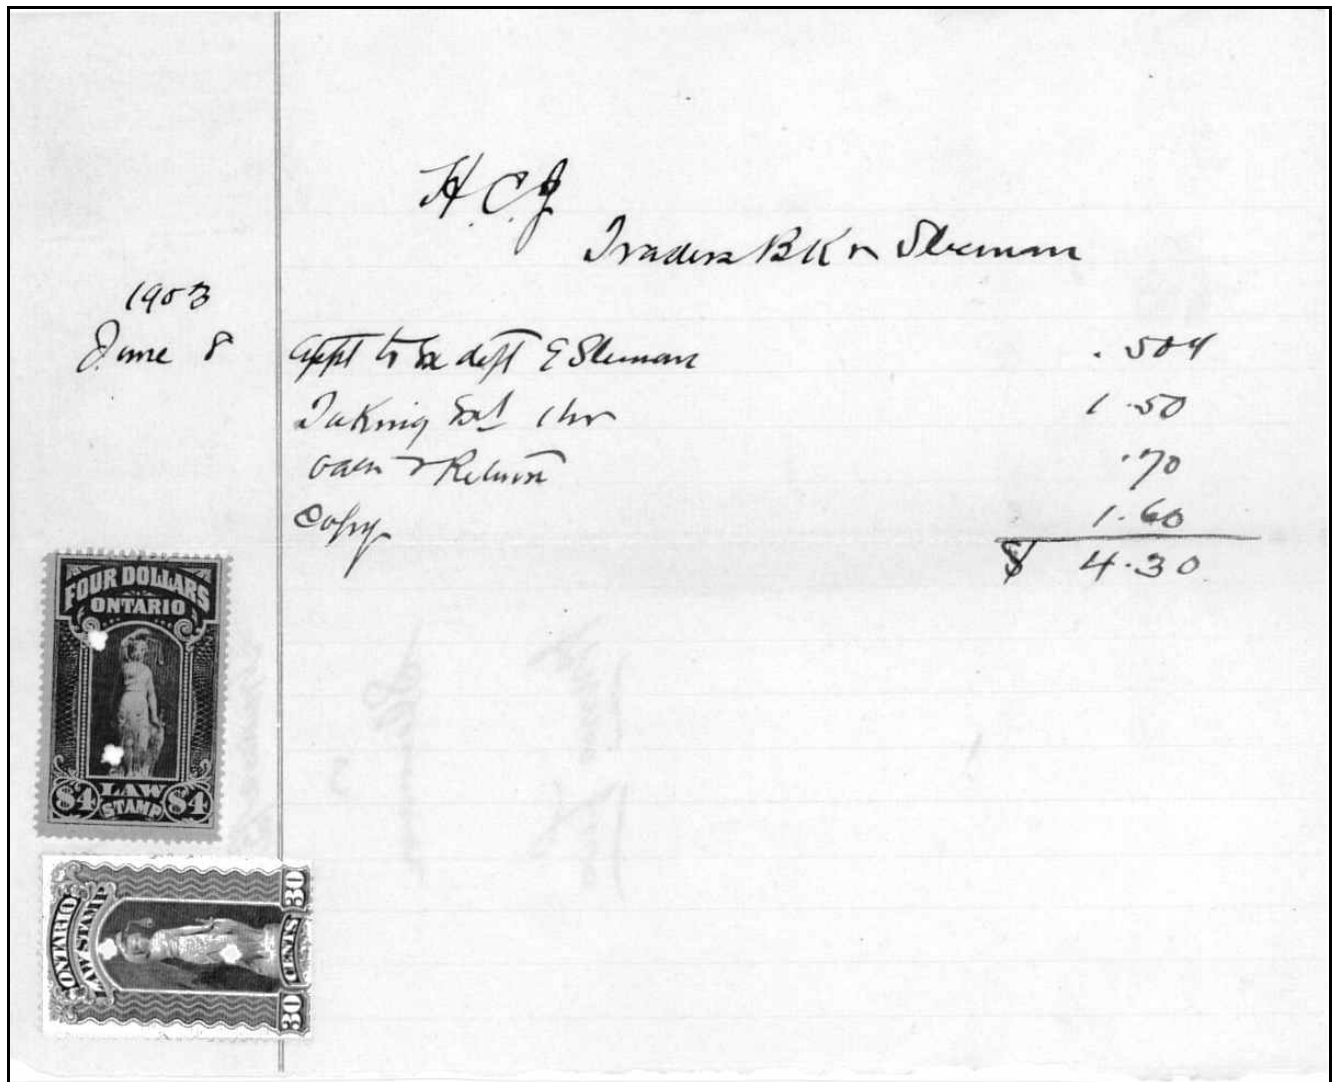 H.C.J
Traders BK v Sleeman
1903
June 8 appt to Ex deft G Sleeman .50
Taking Ex 1 hr 1.50
& Return .70
Copy 1.60
$ 4.30
FOUR DOLLARS
ONTARIO
$4 LAW STAMP $4
ONTARIO
LAW STAMP
30 CENTS 30